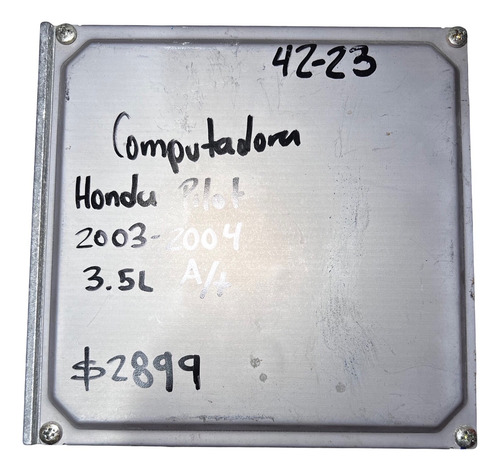 42-23
Computadora
Honda Pilot
2003-2004
3.5L A/t
$2899